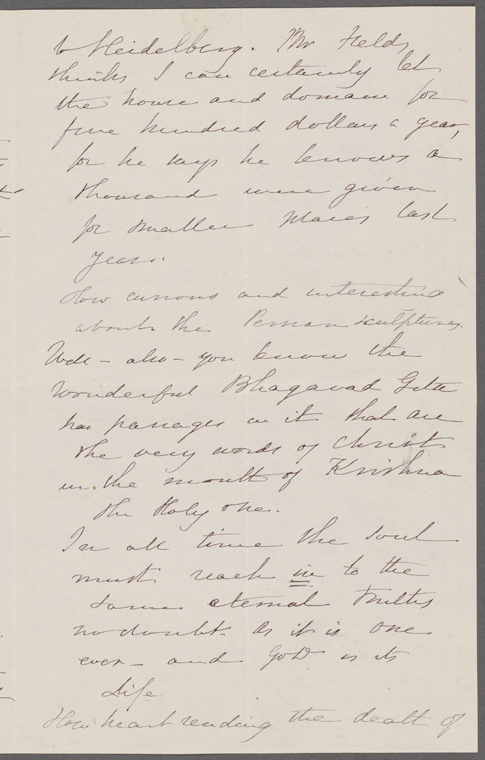 to Heidelberg. Mr Fields
thinks I can certainly let
the house and domain for
five hundred dollars a year,
for he says he knows a
thousand were given
for smaller places last
year.
How curious and interesting
about the Persian sculptures.
Well - also - you know the
wonderful Bhagavad Gita
has passages in it that are
the very words of Christ
in the mouth of Krishna
the Holy one.
In all time the soul
must reach in to the
same eternal truths
no doubt as it is one
ever - and God is its
Life.
How heart rending the death of